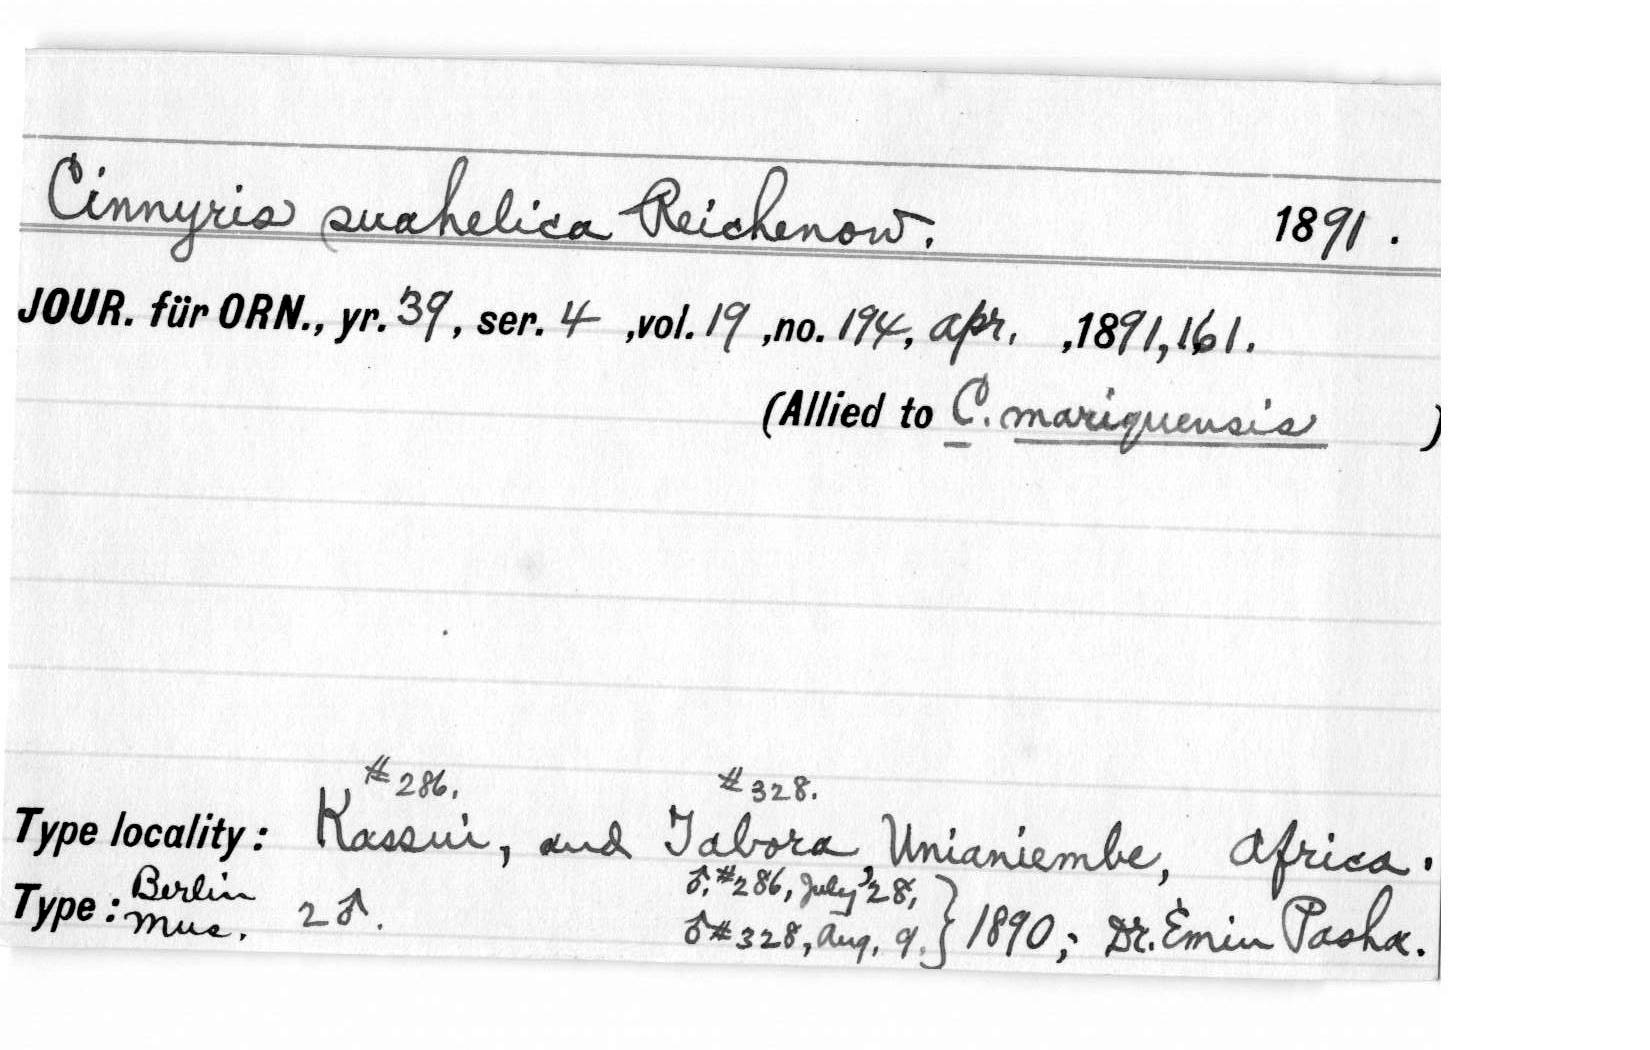 Cinnyris suahelica Reichenow. 1891.
JOUR. für ORN., yr. 39, ser. 4, vol. 19, no. 194, Apr., 1891, 161.
(Allied to C. mariquensis)
#286. #328.
Type locality: Kassui, and Tabora, Unianiembe, Africa.
Type: Berlin Mus. 2♂. ♂. #286, July 28, ♂ #328, Aug. 9. } 1890; Dr. Emin Pasha.